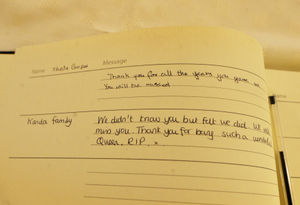 Name
Message
Thank you for all the years you gave us
You will be missed
Kanda family
We didn't know you but felt we did. We will
miss you. Thank you for being such a
Queen. R.I.P. x